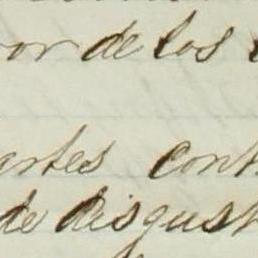 or de los
artes cont
de disgust